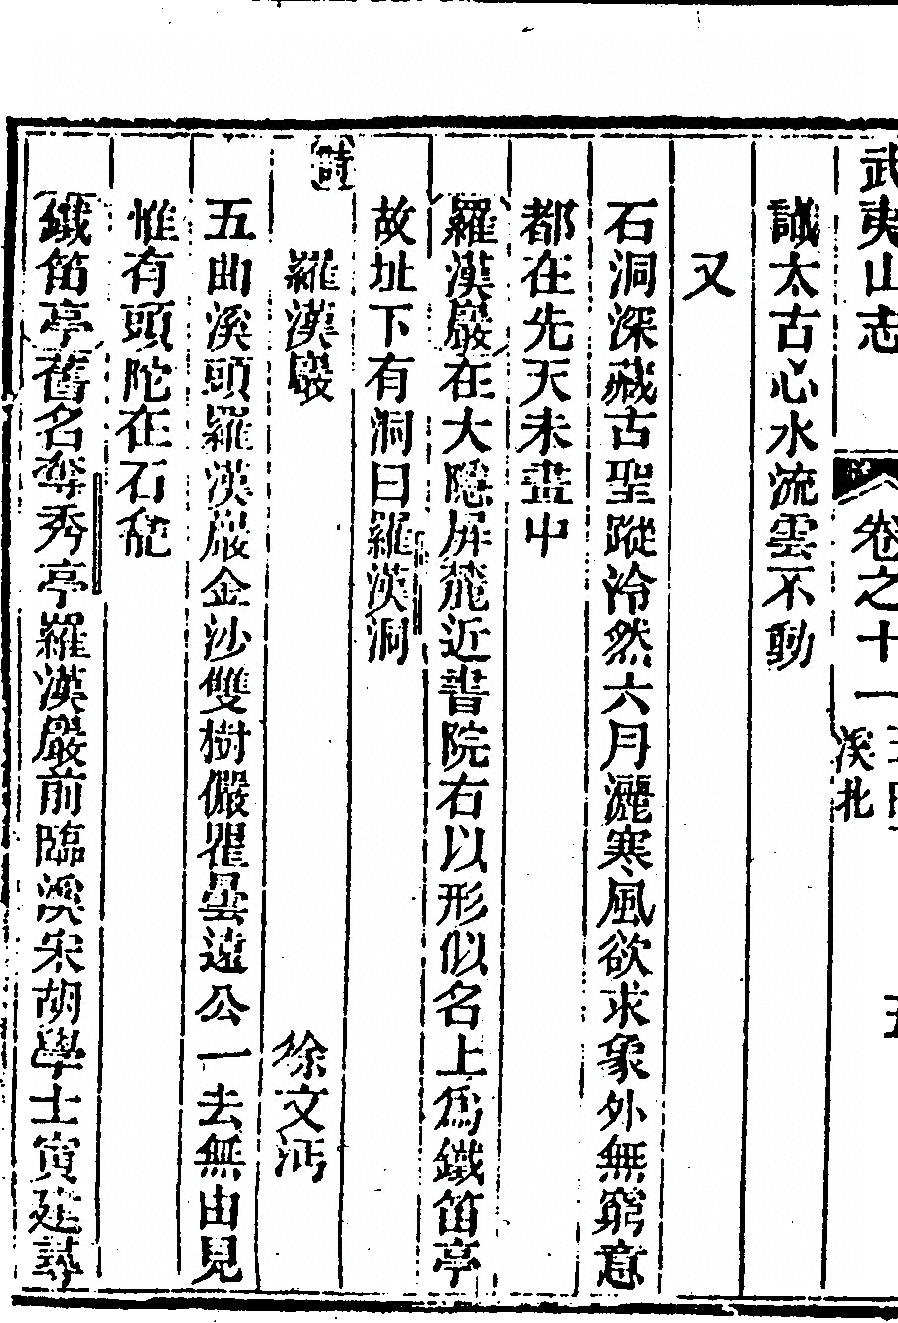 武夷山志 卷之十一 溪北
識太古心水流雲不動
又
石洞深藏古聖蹤泠然六月灑寒風欲求象外無窮意
都在先天未畫中
羅漢巖在大隱屏後近書院右以形似名上爲鐵笛亭
故址下有洞曰羅漢洞
詩
羅漢巖 徐文沔
五曲溪頭羅漢巖金沙雙樹儼瞿曇遠公一去無由見
惟有頭陀在石龍
鐵笛亭舊名奪秀亭羅漢巖前臨溪宋胡學士寅建尋